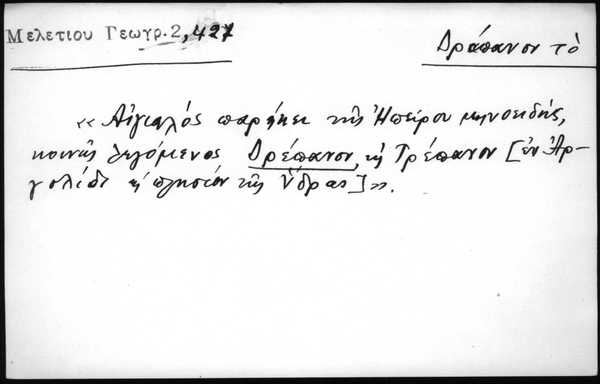 Μελετίου Γεωγρ. 2, 427
Δράπανον τὸ
« Αἰγιαλός παρήκει τῆς Ἠπείρου μηνοειδής,
κοινῶς λεγόμενος Δρέπανον, ἢ Τρέπανον [ἐν Ἀρ-
γολίδι ἢ πλησίον τῆς Ὕδρας]».